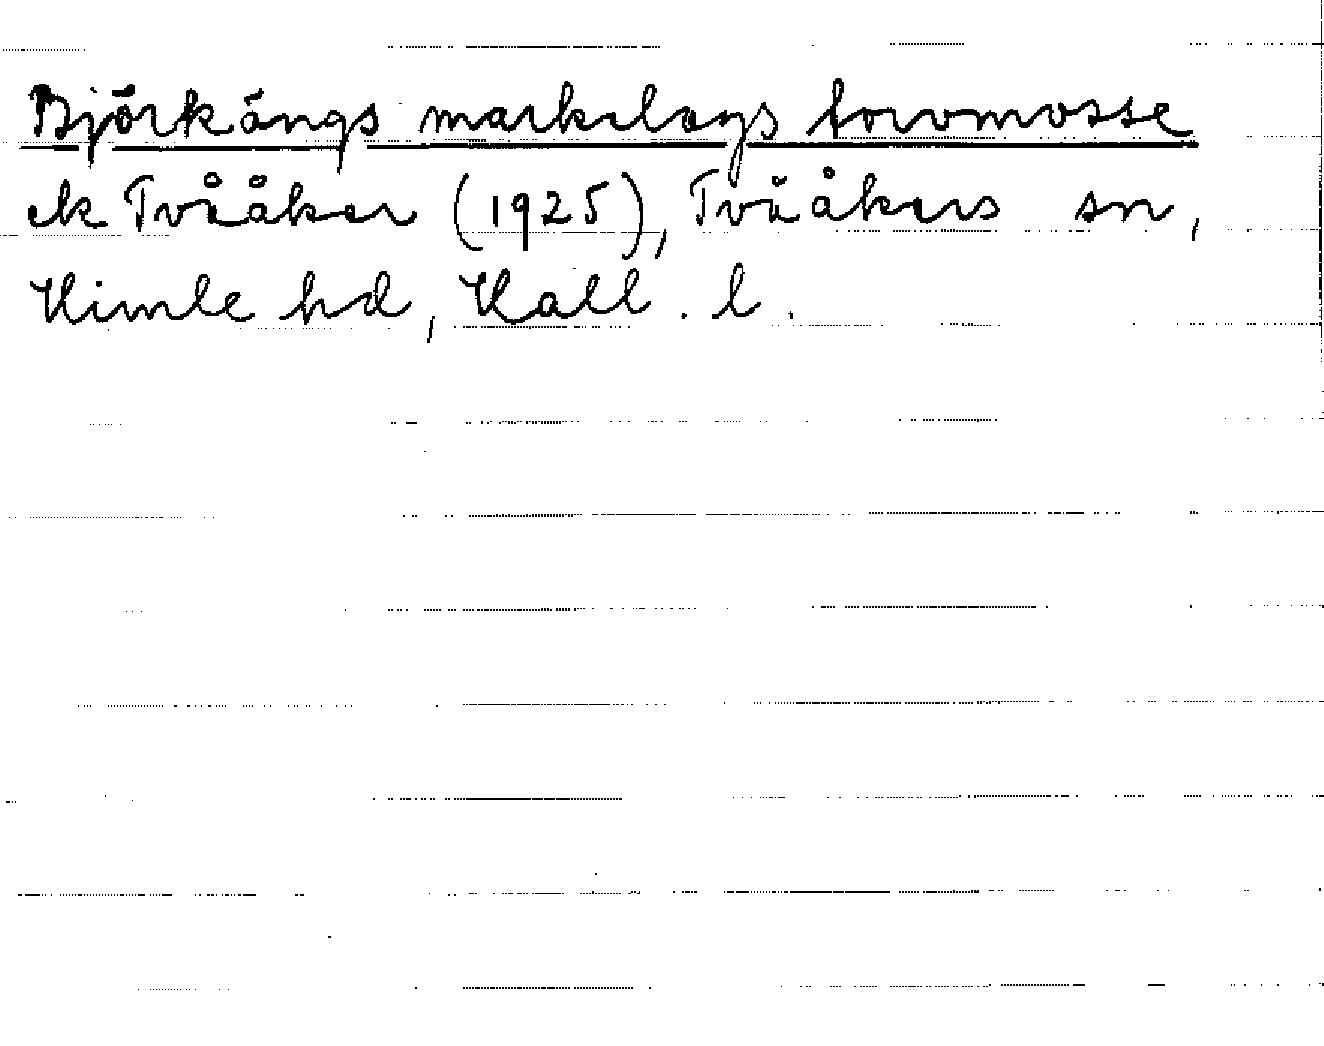 Björkängs markslags torvmosse
ek Tvååker (1925), Tvååkers sn,
Himle hd, Hall. l.